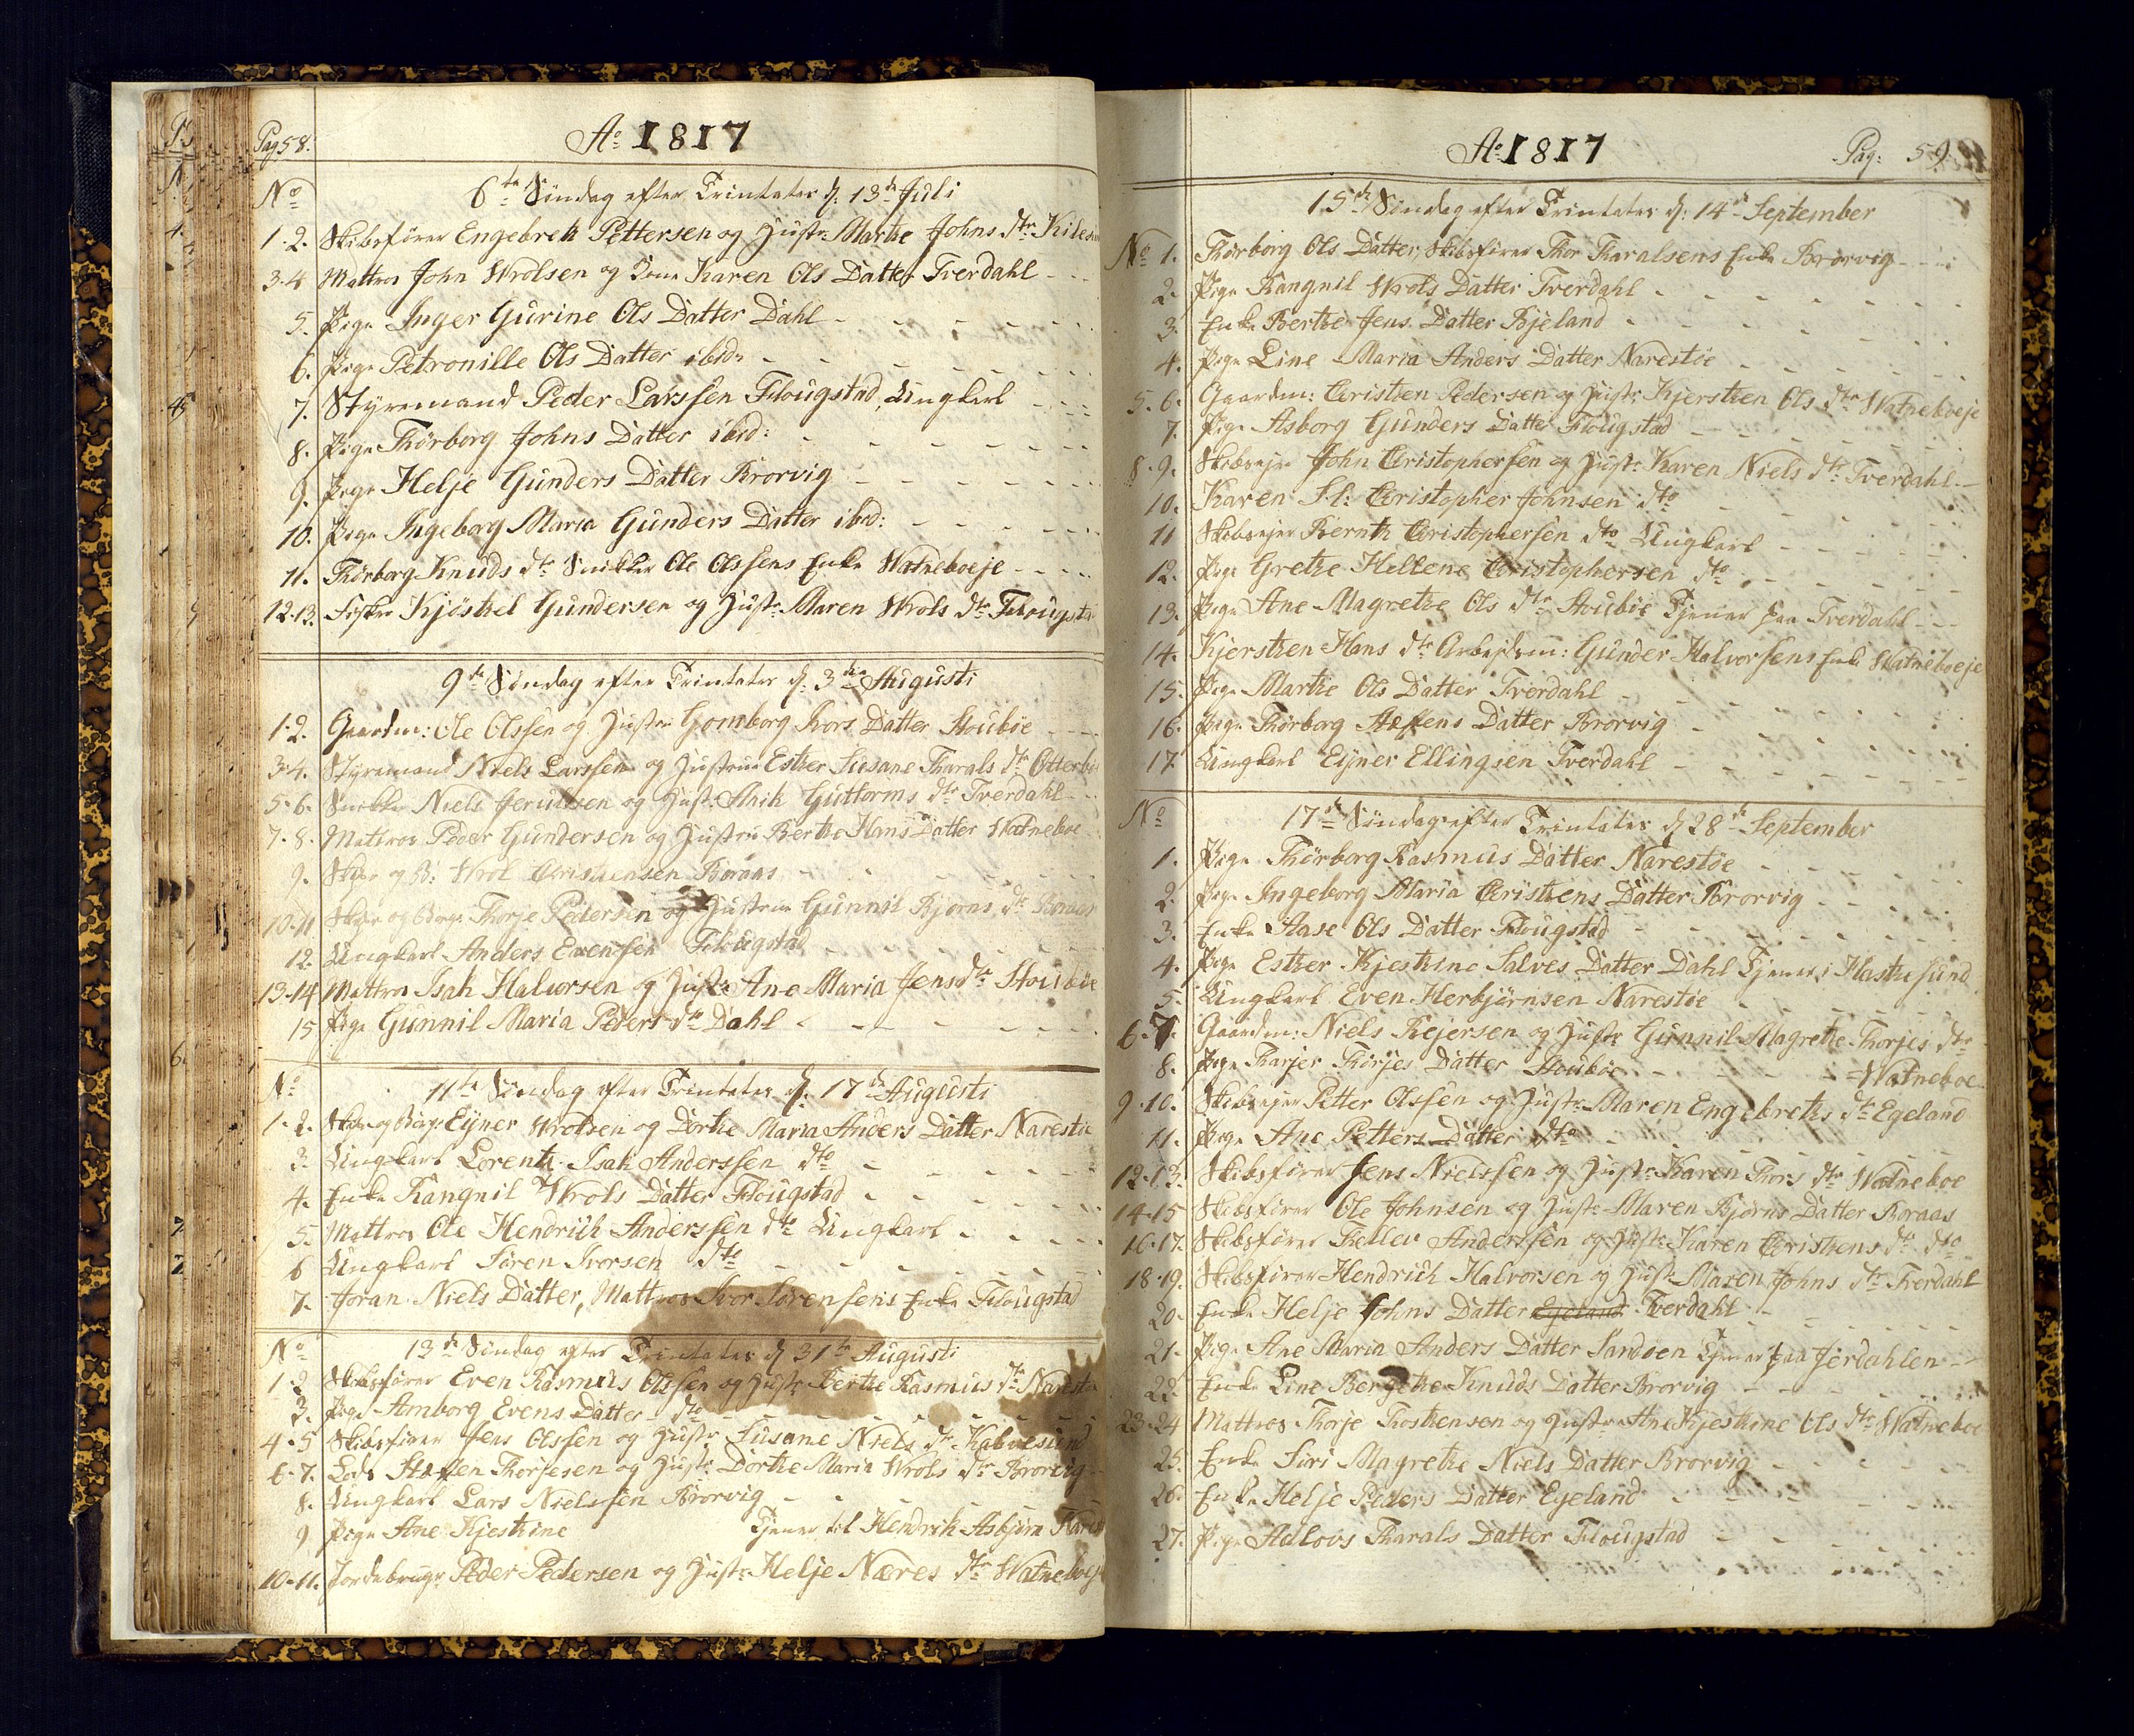 Pag 58.
Ao 1817
No 6te Søndag efter Trinitatis d: 13de Juli
1-2. Skibsfører Engebreth Pettersen og Hustr: Marthe Johns dtr
3-4 Mattros John Wrolsen og Kone Karen Ols Datter Tverdahl
5. Pige Inger Gurine Ols Datter Dahl
6. Pige Petronille Ols Datter ibid:
7. Styremand Peder Larssen Flougstad, Ungkarl
8. Pige Thørborg Johns Datter ibid:
9. Pige Helje Gunders Datter Brorvig
10. Pige Ingeborg Maria Gunders Datter ibid:
11. Thørborg Knuds dtr Snikker Ole Olssens Enke Watneboeje
12-13. Fisker Kjøsthel Gundersen og Hustr: Maren Wrols dtr
9de Søndag efter Trinitatis d: 3die Augusti
1-2. Gaardm: Ole Olssen og Hustru Gomborg Ivors Datter Stoubøe
3-4. Styremand Niels Larssen og Hustrue Esther Susane Tharals dtr
5-6. Snikker Niels Jerulfsen og Hust: Anih Guttorms dtr Tverdahl
7-8. Mattros Peder Gundersen og Hustru Berthe Hans Datter Watneboe
9. Skper og B: Wrol Christensen Boraas
10-11 Skper og Borger Thorje Pedersen og Hustrue Gunnil Bjørns dtr Boraas
12. Ungkarl Anders Evensen Flougstad
13-14 Mattros Isak Halvorsen og Hustr: Ane Maria Jens dtr Stoubøe
15 Pige Gunnil Maria Peders dtr Dahl
No 11te Søndag efter Trinitatis d: 17de Augusti
1-2. Skper og Borger Ejner Wrolsen og Dorthe Maria Anders Datter Narestøe
3. Ungkarl Lorentz Isak Anderssen dto
4. Enke Rangnil Wrols Datter Flougstad
5. Mattros Ole Hendrich Anderssen dto Ungkarl
6 Ungkarl Søren Ivorsen dto
7. Joran Niels Datter, Mattros Ivor Sørensens Enke Flougstad
No 13de Søndag efter Trinitatis d 31te Augusti
1-2 Skibsfører Even Rasmus Olssen og Hustr: Berthe Rasmus dtr
3. Pige Amborg Evens Datter dto
4-5 Skibsfører Jens Olssen og Hustr: Susane Niels dtr Kalvesund
6-7. Lods Steffen Thorjesen og Hustr: Dorthe Maria Wrols dtr Brorvig
8. Ungkarl Lars Nielssen Brorvig
9 Pige Ane Kjesthine Tjener til Hendrik Asbjørn
10-11. Jordebruger Peder Pedersen og Hustr: Helje Næres dtr Watneboeje
Ao 1817 Pag: 59
15de Søndag efter Trinitatis d: 14de September
No 1. Thørborg Ols Datter, Skibsfører Thor Tharalsens Enke Brorvig
2. Pige Rangnil Wrols Datter Tverdahl
3. Enke Berthe Jens Datter Bjeland
4. Pige Line Maria Anders Datter Narestøe
5-6. Gaardm: Christen Pedersen og Hustr: Kjersthen Ols dtr Watneboeje
7. Pige Asborg Gunders Datter Flougstad
8-9. Skibsejer John Christophersen og Hustr: Karen Niels dtr Tverdahl
10. Karen Sl: Christopher Johnsen dto
11 Skibsejer Bernth Christophersen dto Ungkarl
12. Pige Grethe Hellene Christophersen dto
13. Pige Ane Magrethe Ols dtr Stoubøe Tjener paa Tverdahl
14. Kjersthen Hans dtr Arbejdsm: Gunder Halvorsens Enke Watneboeje
15. Pige Marthe Ols Datter Tverdahl
16. Pige Thørborg Steffens Datter Brorvig
17 Ungkarl Ejner Ellingsen Tverdahl
No 17de Søndag efter Trinitatis d 28de September
1. Pige Thørborg Rasmus Datter Narestøe
2. Pige Ingeborg Maria Christhens Datter Brorvig
3. Enke Aase Ols Datter Flougstad
4. Pige Esther Kjesthine Salves Datter Dahl Tjener i Hasthesund
5. Ungkarl Even Herbjørnsen Narestøe
6-7. Gaardm: Niels Rejersen og Hustr: Gunnil Magrethe Thorjes dtr
8. Pige Tharjer Thorjes Datter Stoubøe = Watneboe
9-10. Skibsejer Petter Olssen og Hustr: Maren Engebreths dtr Egeland
11. Pige Ane Petters Datter dto
12-13. Skibsfører Jens Nielssen og Hustr: Karen Thors dtr Watneboe
14-15 Skibsfører Ole Johnsen og Hustr: Maren Bjørns Datter Boraas
16-17. Skibsfører Thellev Anderssen og Hustr: Karen Christhens dtr dto
18-19. Skibsfører Hendrich Halvorsen og Hustr: Maren Johns dtr Tverdahl
20. Enke Helje Johns Datter Egeland Tverdahl
21. Pige Ane Maria Anders Datter Sandøen Tjener paa Jerdahlen
22. Enke Line Bergethe Knuds Datter Brorvig
23-24 Mattros Thorje Thosthensen og Hustru Ane Kjesthine Ols dtr Watneboe
25. Enke Siri Magrethe Niels Datter Brorvig
26. Enke Helje Peders Datter Egeland
27. Pige Adlovs Tharals Datter Flougstad